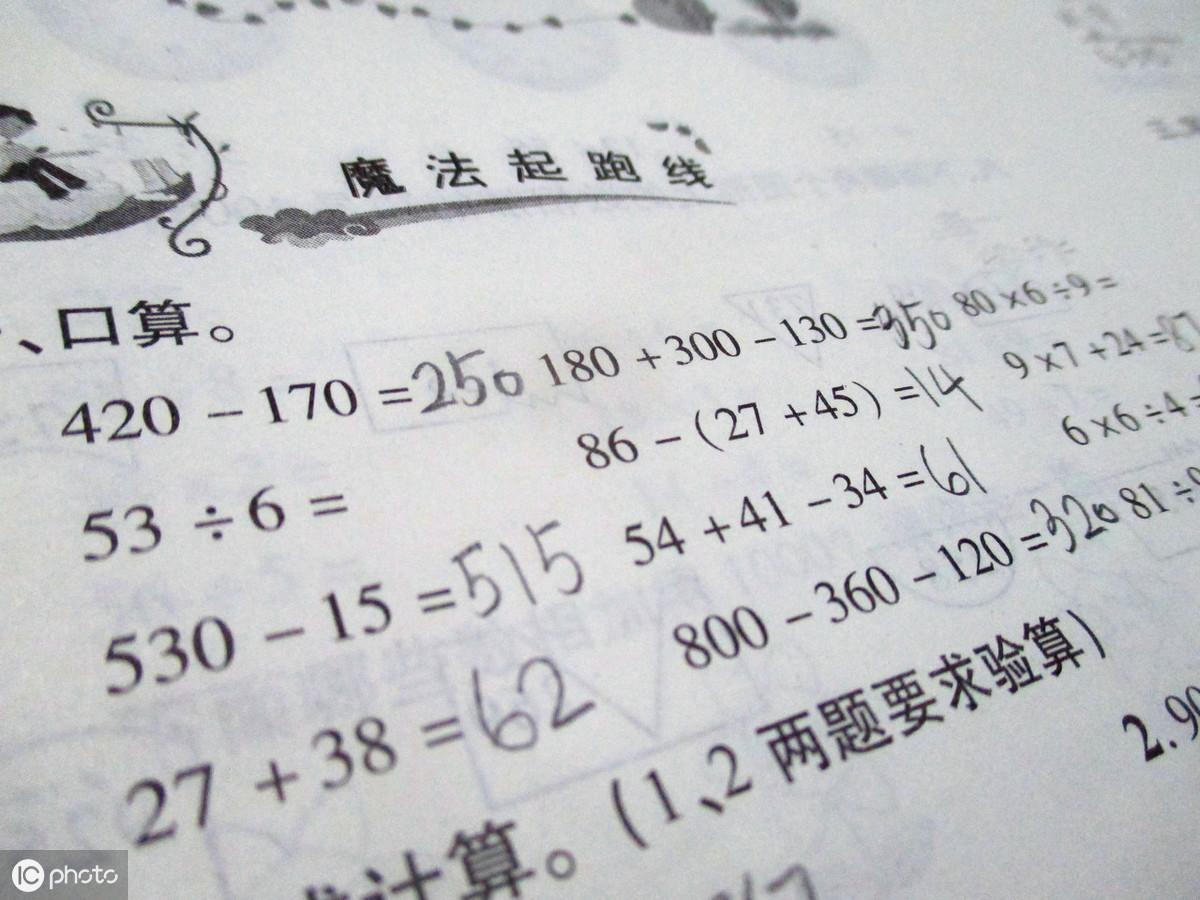 魔法起跑线
、口算。
420 - 170 = 250 180 + 300 - 130 = 350 80 × 6 ÷ 9 =
53 ÷ 6 = 86 - (27 + 45) = 14 9 × 7 + 24 = 87
530 - 15 = 515 54 + 41 - 34 = 61 6 × 6 ÷ 4 =
27 + 38 = 62 800 - 360 - 120 = 320 81 ÷
计算。(1、2 两题要求验算)
2.90
iC photo